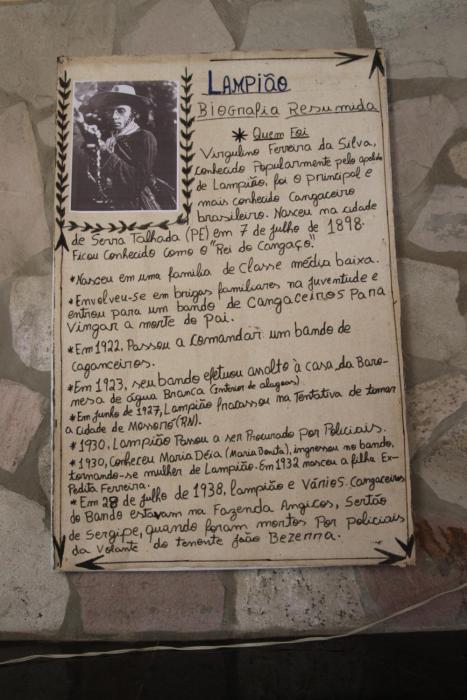 LAMPIÃO
Biografia Resumida
* Quem Foi
Virgulino Ferreira da Silva,
conhecido Popularmente pelo apelido
de Lampião, foi o principal e
mais conhecido Cangaceiro
brasileiro. Nasceu na cidade
de Serra Talhada (PE) em 7 de julho de 1898.
Ficou conhecido como o "Rei do Cangaço".
*Nasceu em uma família de Classe média baixa.
*Envolveu-se em brigas familiares na juventude e
entrou para um bando de Cangaceiros Para
Vingar a morte do Pai.
*Em 1922, Passou a Comandar um bando de
caganceiros.
*Em 1923, seu bando efetuou assalto à casa da Baro-
nesa de água Branca (interior de alagoas)
*Em junho de 1927, Lampião fracassou na Tentativa de tomar
a Cidade de Mossoró (RN).
*1930, Lampião Passou a ser Procurado por Policiais.
*1930, Conheceu Maria Déia (Maria Bonita), ingressou no bando,
tornando-se mulher de Lampião. Em 1932 nasceu a filha Ex-
Pedita Ferreira.
*Em 28 de julho de 1938, lampião e Vários Cangaceiros
do Bando estavam na Fazenda Angicos, Sertão
de Sergipe, quando foram mortos Por policiais
da Volante do tenente João Bezerra.